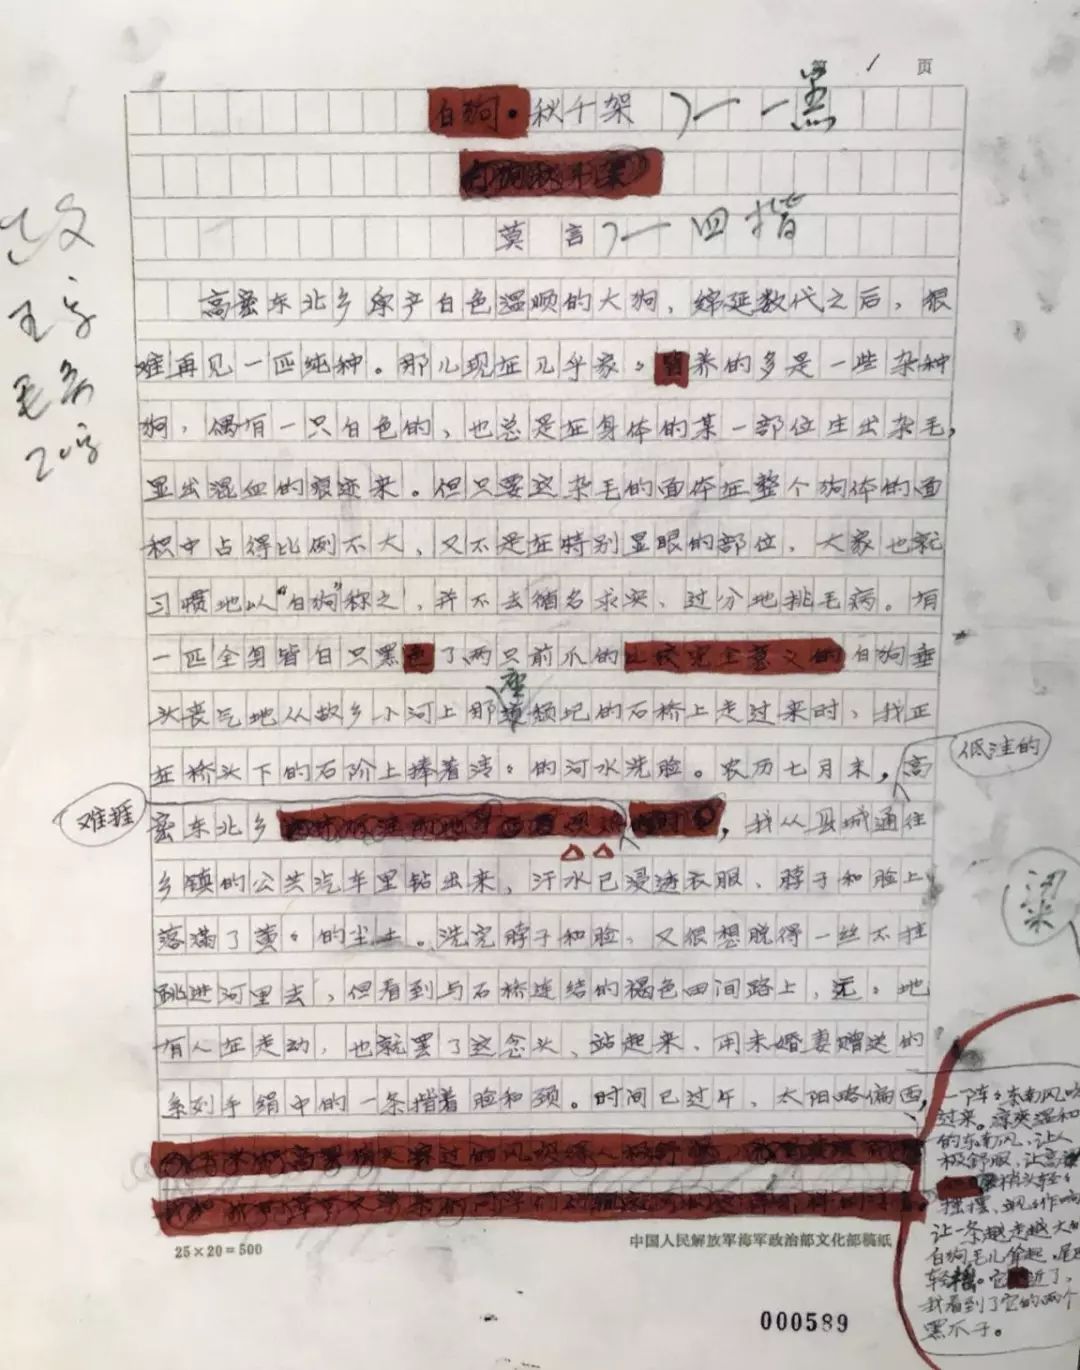 第 1 页
白狗·秋千架 一黑
莫言 四楷
高密东北乡原产白色温顺的大狗，绵延数代之后，很
难再见一匹纯种。那儿现在几乎家々养的多是一些杂种
狗，偶有一只白色的，也总是在身体的某一部位生出杂毛，
显出混血的痕迹来。但只要这杂毛的面体在整个狗体的面
积中占得比例不大，又不是在特别显眼的部位，大家也就
习惯地以“白狗”称之，并不去循名求实、过分地挑毛病。有
一匹全身皆白只黑了两只前爪的白狗垂
头丧气地从故乡小河上那座颓圮的石桥上走过来时，我正
在桥头下的石阶上捧着清々的河水洗脸。农历七月末，高
低洼的
密东北乡
难捱
，我从县城通往
乡镇的公共汽车里钻出来，汗水已浸透衣服，脖子和脸上
落满了黄々的尘土。洗完脖子和脸，又很想脱得一丝不挂
跳进河里去，但看到与石桥连结的褐色田间路上，远々地
有人在走动，也就罢了这念头，站起来，用未婚妻赠送的
系列手绢中的一条揩着脸和颈。时间已过午，太阳略偏西，
一下车，东南风吹
过来。凉爽温和
的东南风，让人
极舒服，让高粱
梢头轻々
摇摆，
让一条越走越大的
白狗毛儿耸起，尾巴
轻摇。它近了，
我看到了它的两个
黑爪子。
25×20=500
中国人民解放军海军政治部文化部稿纸
000589